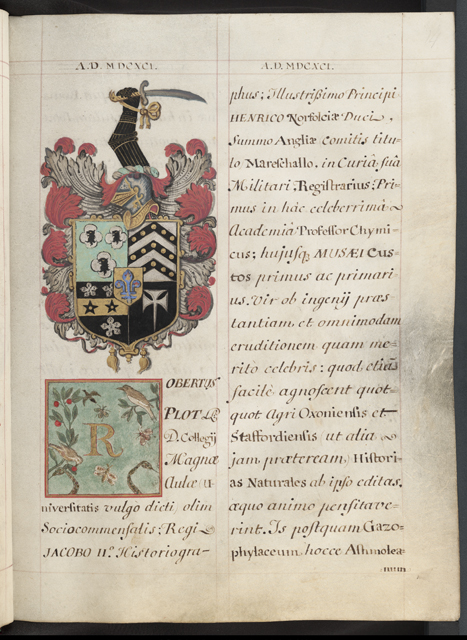 A.D. MDCXCI.
R
OBERTUS
PLOT LL
D. Collegij
Magnæ
Aulæ u-
niversitatis vulgo dicti, olim
Sociocommensalis: Regi
JACOBO II.º Historiogra-
A.D. MDCXCI.
phus; Illustrissimo Principi
HENRICO Norfolciæ Duci,
summo Angliæ Comitis titu-
lo Mareschallo, in Curia sua
Militari, Registrarius: Pri-
mus in hac celeberrima
Academia Professor Chymi-
cus; hujusq; MUSÆI Cus-
tos primus ac primari
us. Vir ob ingenij præs-
tantiam et omnimodam
eruditionem quam me-
rito celebris: quod etiā
facile agnoscent quot-
quot Agri Oxoniensis et
Staffordiensis ut alia
jam præteream, Histori-
as Naturales ab ipso editas,
æquo animo pensitave-
rint. Is postquam Gazo-
phylaceum hocce Ashmolea-
num